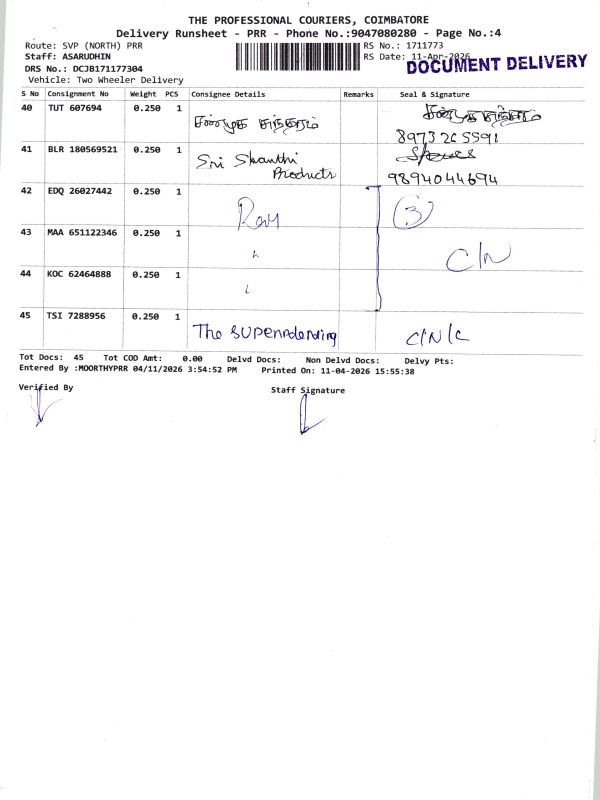 THE PROFESSIONAL COURIERS, COIMBATORE
Delivery Runsheet - PRR - Phone No.:9047080280 - Page No.:4
Route: SVP (NORTH) PRR
RS No.: 1711773
Staff: ASARUDHIN
RS Date: 11-Apr-2026
DRS No.: DCJB171177304
DOCUMENT DELIVERY
Vehicle: Two Wheeler Delivery
S No Consignment No Weight PCS Consignee Details Remarks Seal & Signature
40 TUT 607694 0.250 1 சண்முக சுந்தரம் சண்முக சுந்தரம்
8973205591
41 BLR 180569521 0.250 1 Sri Shanthi
Products 9894044694
42 EDQ 26027442 0.250 1 3
43 MAA 651122346 0.250 1 " C/N
44 KOC 62464888 0.250 1
45 TSI 7288956 0.250 1 The C/N/C
Tot Docs: 45 Tot COD Amt: 0.00 Delvd Docs: Non Delvd Docs: Delvy Pts:
Entered By :MOORTHYPRR 04/11/2026 3:54:52 PM Printed On: 11-04-2026 15:55:38
Verified By Staff Signature